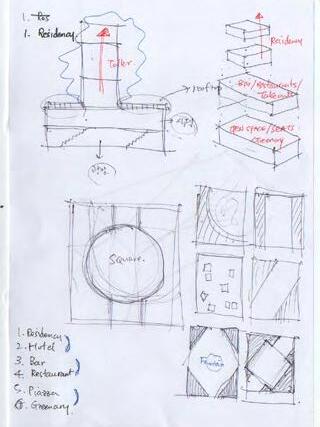 1. Res
1. Residency.
Toller
rooftop
Residency
Bar/Restaurants/
Takeouts
OPEN SPACE/SEATS
Greenary
Square.
Fountain
1. Residency
2. Hotel
3. Bar
4. Restaurant
5. Piazza
6. Greenary